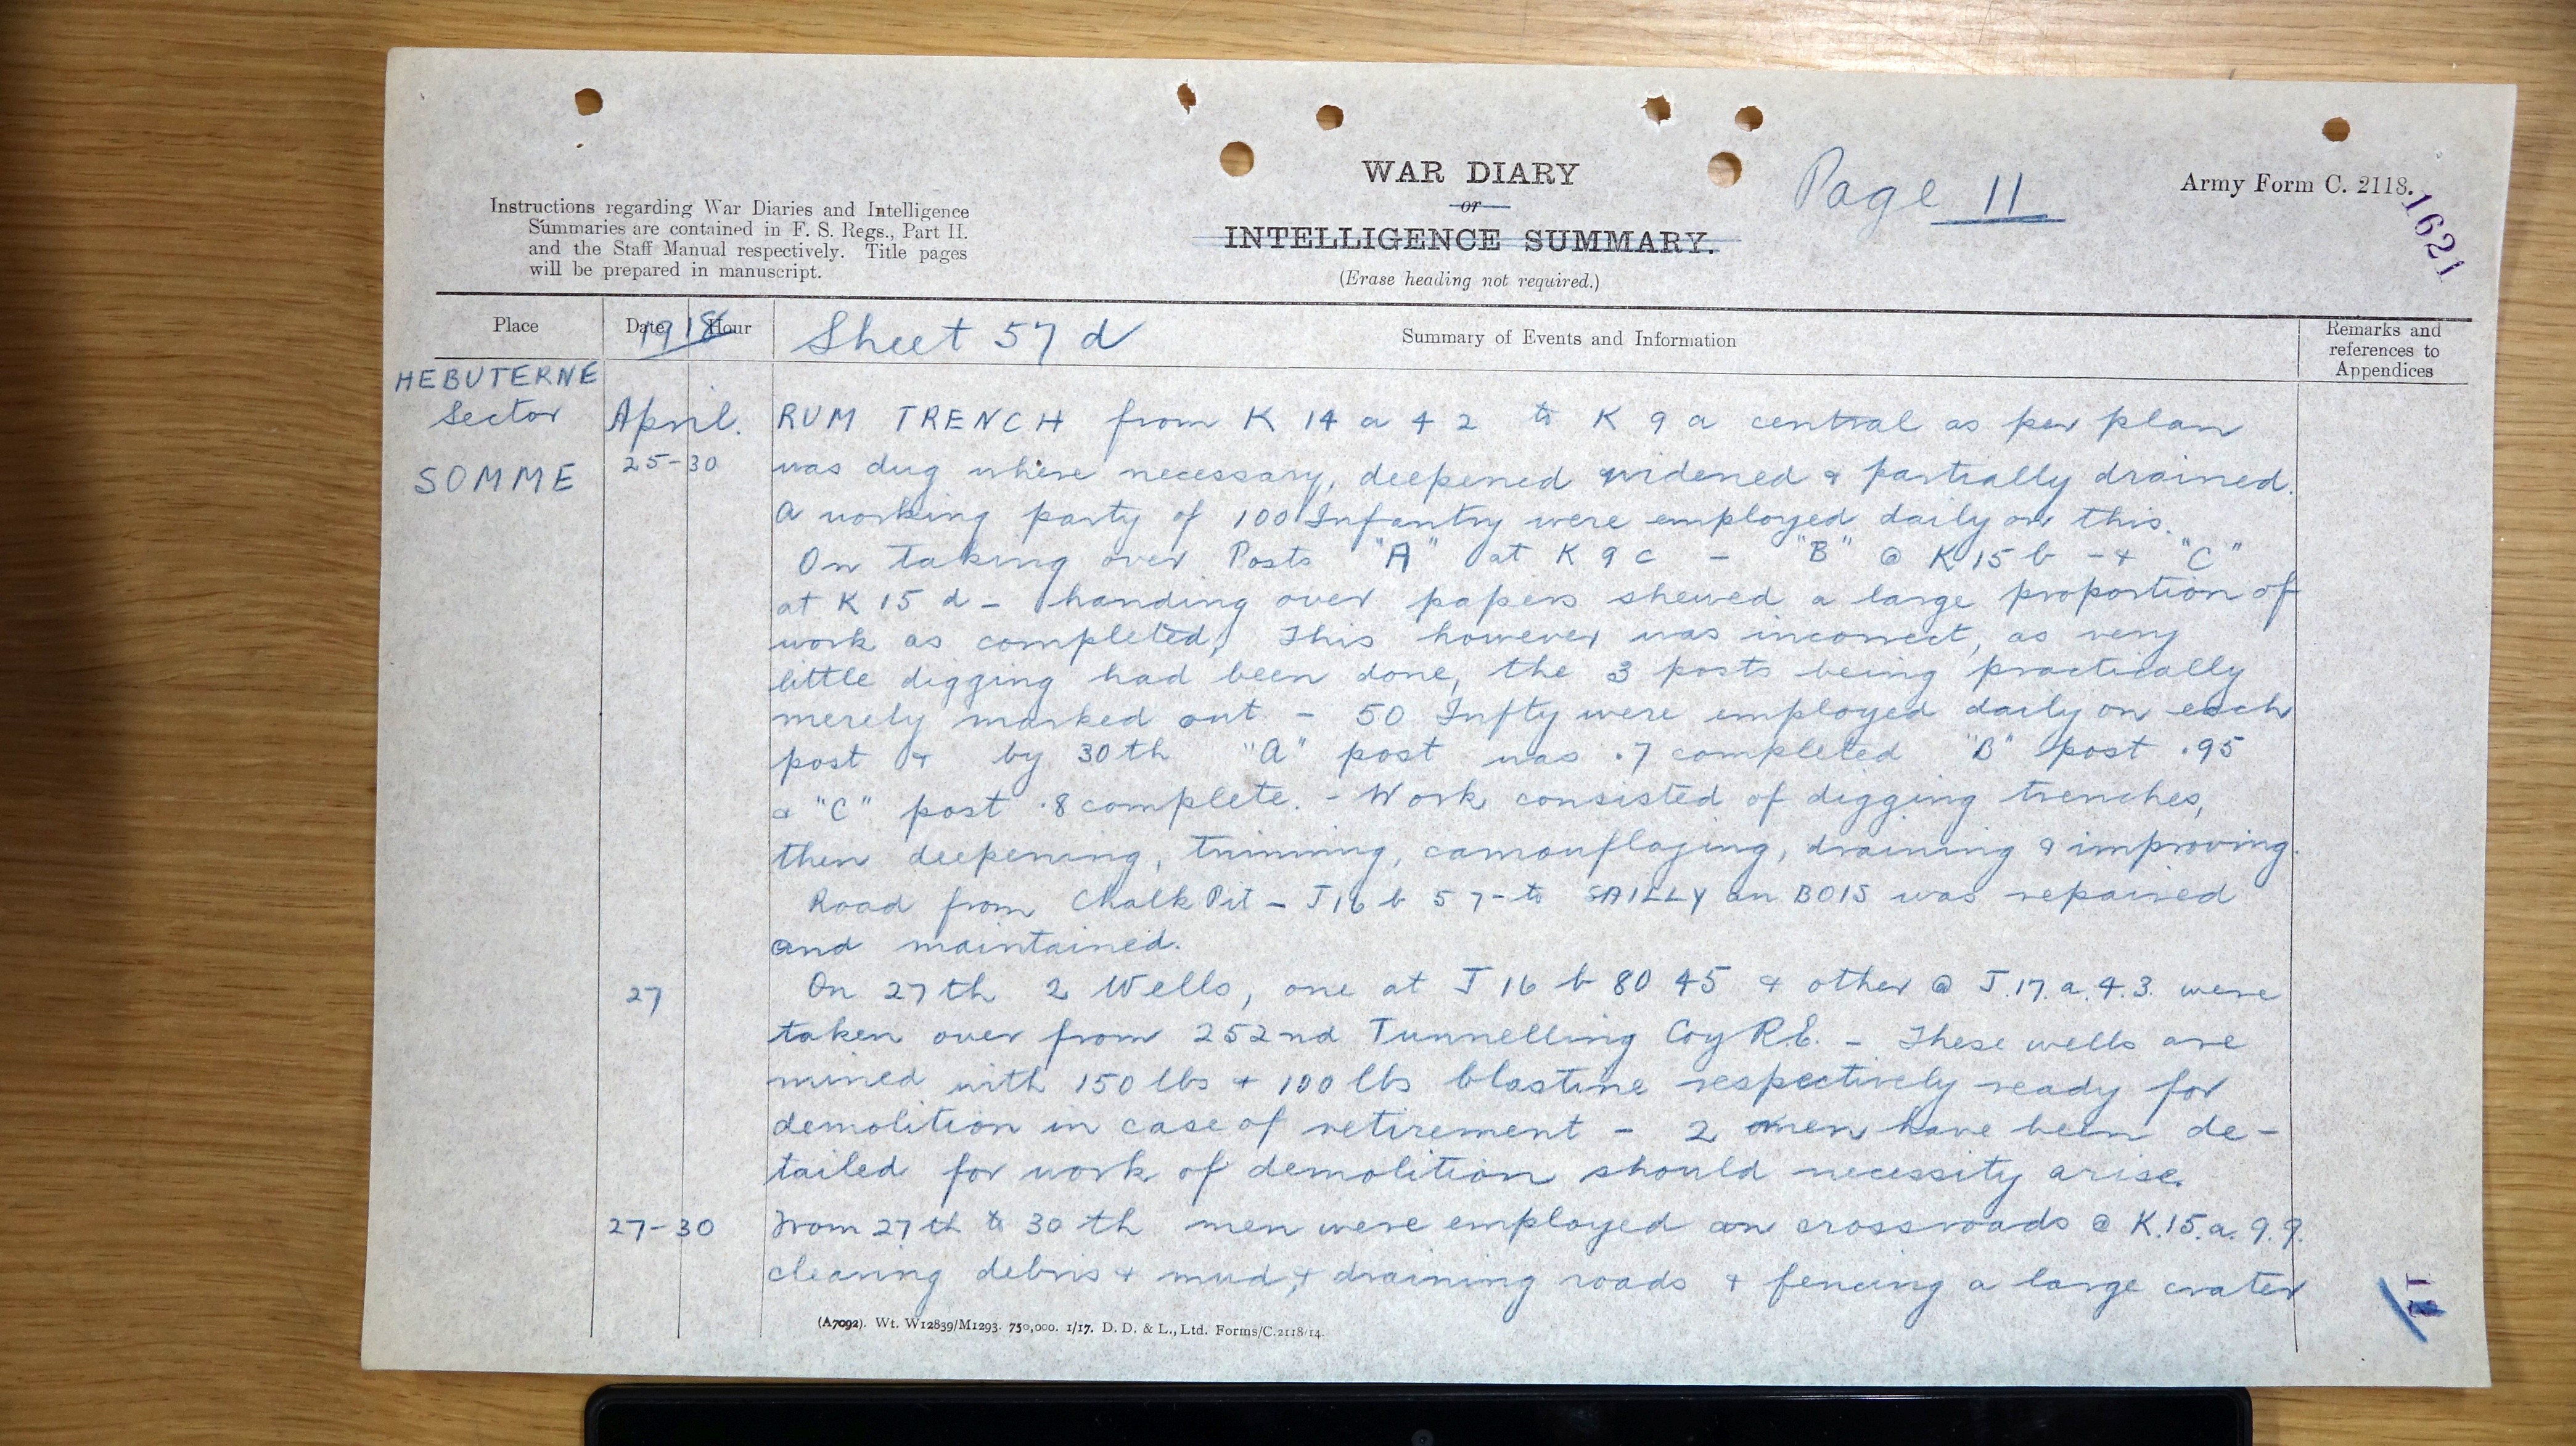 WAR DIARY
or
INTELLIGENCE SUMMARY.
(Erase heading not required.)
Page 11
Army Form C. 2118.
1621
Instructions regarding War Diaries and Intelligence
Summaries are contained in F. S. Regs., Part II.
and the Staff Manual respectively. Title pages
will be prepared in manuscript.
Place
Date Hour
1918
Sheet 57 d
Summary of Events and Information
Remarks and
references to
Appendices
HEBUTERNE
Sector
SOMME
April.
25-30
RUM TRENCH from K 14 a 4 2 to K 9 a central as per plan
was dug where necessary, deepened widened & partially drained.
A working party of 100 Infantry were employed daily on this.
On taking over Posts "A" at K 9 c - "B" @ K 15 b - & "C"
at K 15 d - handing over papers shewed a large proportion of
work as completed, This however was incorrect, as very
little digging had been done, the 3 posts being practically
merely marked out - 50 Infty were employed daily on each
post & by 30th "A" post was .7 completed "B" post .95
& "C" post .8 complete. - Work consisted of digging trenches,
then deepening, trimming, camouflaging, draining & improving.
Road from Chalk Pit - J 16 b 5 7 - to SAILLY au BOIS was repaired
and maintained.
27
On 27th 2 Wells, one at J 16 b 80 45 & other @ J.17.a.4.3. were
taken over from 252nd Tunnelling Coy R.E. - These wells are
mined with 150 lbs + 100 lbs blastine respectively ready for
demolition in case of retirement - 2 men have been de-
tailed for work of demolition should necessity arise.
27-30
From 27th to 30th men were employed on crossroads @ K.15.a.9.9.
clearing debris & mud, & draining roads & fencing a large crater
(A7092). Wt. W12839/M1293. 750,000. 1/17. D. D. & L., Ltd. Forms/C.2118/14.